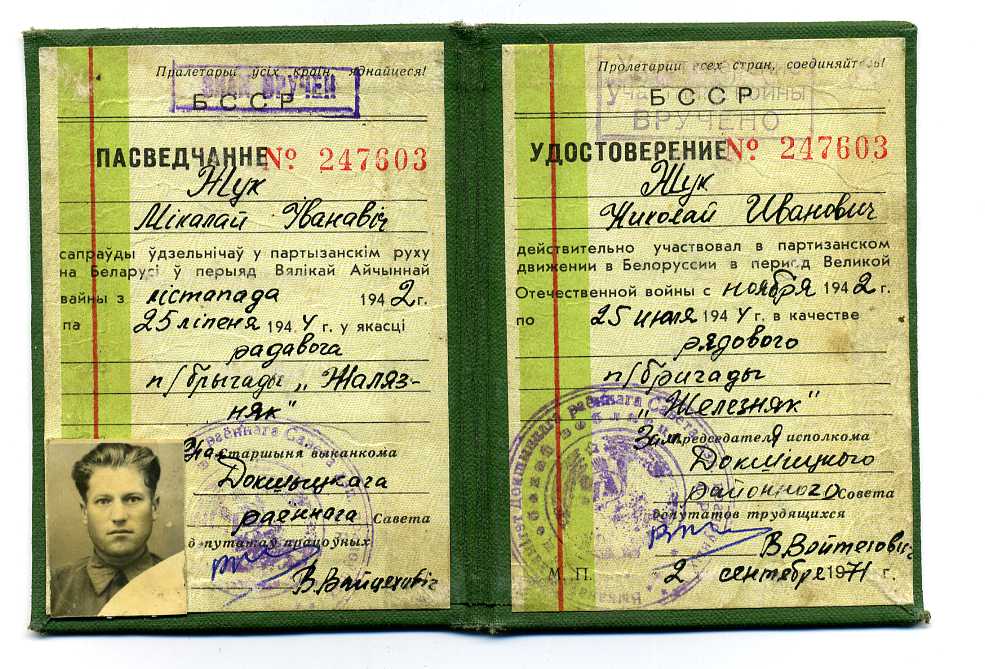 Пралетарыі ўсіх краін, яднайцеся!
ЗНАК ВРУЧЕН
БССР
ПАСВЕДЧАННЕ № 247603
Жук
Мікалай Іванавіч
сапраўды ўдзельнічаў у партызанскім руху
на Беларусі ў перыяд Вялікай Айчыннай
вайны з лістапада 1942 г.
па 25 ліпеня 1944 г. у якасці
радавога
п/брыгады „Жаляз-
няк"
Нам старшыня выканкома
Докшыцкага
раённага Савета
дэпутатаў працоўных
В. Вайцеховіч
Пролетарии всех стран, соединяйтесь!
Участника войны
БССР
ВРУЧЕНО
УДОСТОВЕРЕНИЕ № 247603
Жук
Николай Иванович
действительно участвовал в партизанском
движении в Белоруссии в период Великой
Отечественной войны с ноября 1942 г.
по 25 июля 1944 г. в качестве
рядового
п/бригады
„Железняк"
Зам председателя исполкома
Докшицкого
районного Совета
депутатов трудящихся
В. Войтехович
М. П. 2 сентября 1971 г.